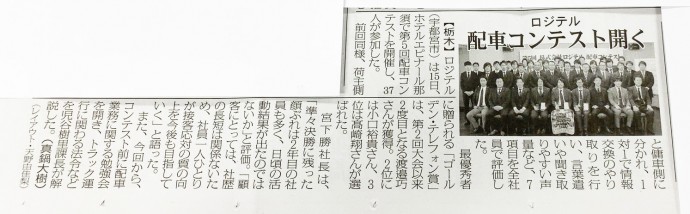 ロジテル
配車コンテスト開く
【栃木】ロジテル
(宇都宮市)は15日、
ホテルエピナール那
須で第5回配車コン
テストを開催し、37
人が参加した。
前回同様、荷主側
と傭車側に
分かれ、1
対1で情報
交換のやり
取りを行
い、言葉遣
いや聞き取
りやすい声
量など、7
項目を全社
員で評価し
た。
最優秀者
に贈られる「ゴール
デン・テレフォン賞」
は、第2回大会以来
2度目となる渡邉巧
さんが獲得。2位に
は小口裕貴さん、3
位は高崎翔さんが選
ばれた。
宮下勝社長は、
「準々決勝に残った
顔ぶれは2年目の社
員も多く、日頃の活
動結果が出たのでは
ないか」と評価。「顧
客にとっては、社歴
の長短は関係ないた
め、社員一人ひとり
が接客応対の質の向
上を今後も目指して
いく」と語った。
また、今回から、
コンテスト前に配車
業務に関する勉強会
を開き、トラック運
行に関わる法令など
を児谷樹里課長が解
説した。(貫鍋大樹)
(レイアウト・天野由佳梨)